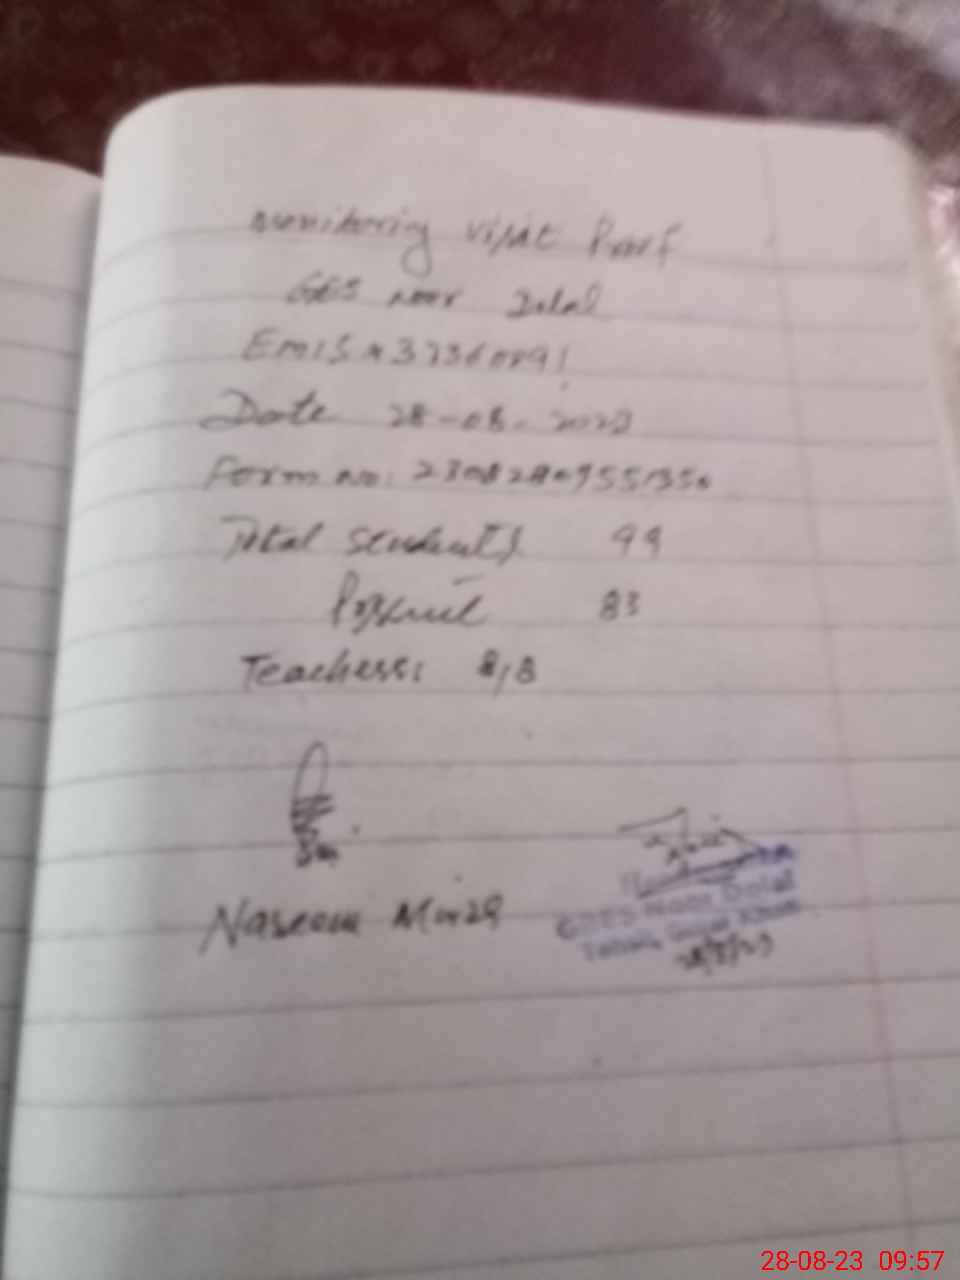 Monitoring Visit Proof
GES Noor Dolal
Emis # 37360291
Date 28-08-2023
Form no: 23082809551350
Total Students 99
Present 83
Teachers: 8/8
Naseem Mirza
Noor Dolal
Tehsil Gujar Khan
28/8/23
28-08-23 09:57